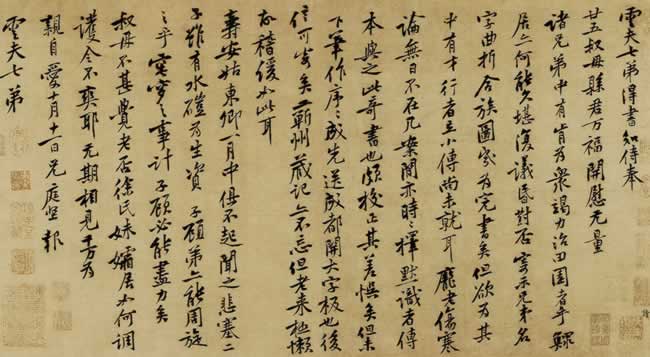 雲夫七弟得書知侍奉
廿五叔母縣君万福開慰无量
諸兄弟中有肯為衆竭力治田園者乎鰥
居亦何能久堪復議昏對否寄示兄弟名
字曲折合族圖遂為完書矣但欲為其
中有才行者立小傳尚未就耳龐老傷寒
論無日不在几案間亦時〻擇默識者傳
本與之此奇書也頗校正其差悮矣但未
下筆作序〻成先送成都開大字板也後
信可寄矣蘄州藏記亦不忘但老来極懶
故稽緩如此耳
壽安姑東卿一月中俱不起聞之悲塞二
子雖有水磑為生資 子顧弟亦能周旋
之乎窀穸之事計 子顧必能盡力矣
叔母不甚覺老否徐氏妹孀居如何調
護令不爽耶无期相見千万為
親自愛十月十一日兄庭堅報
雲夫七弟